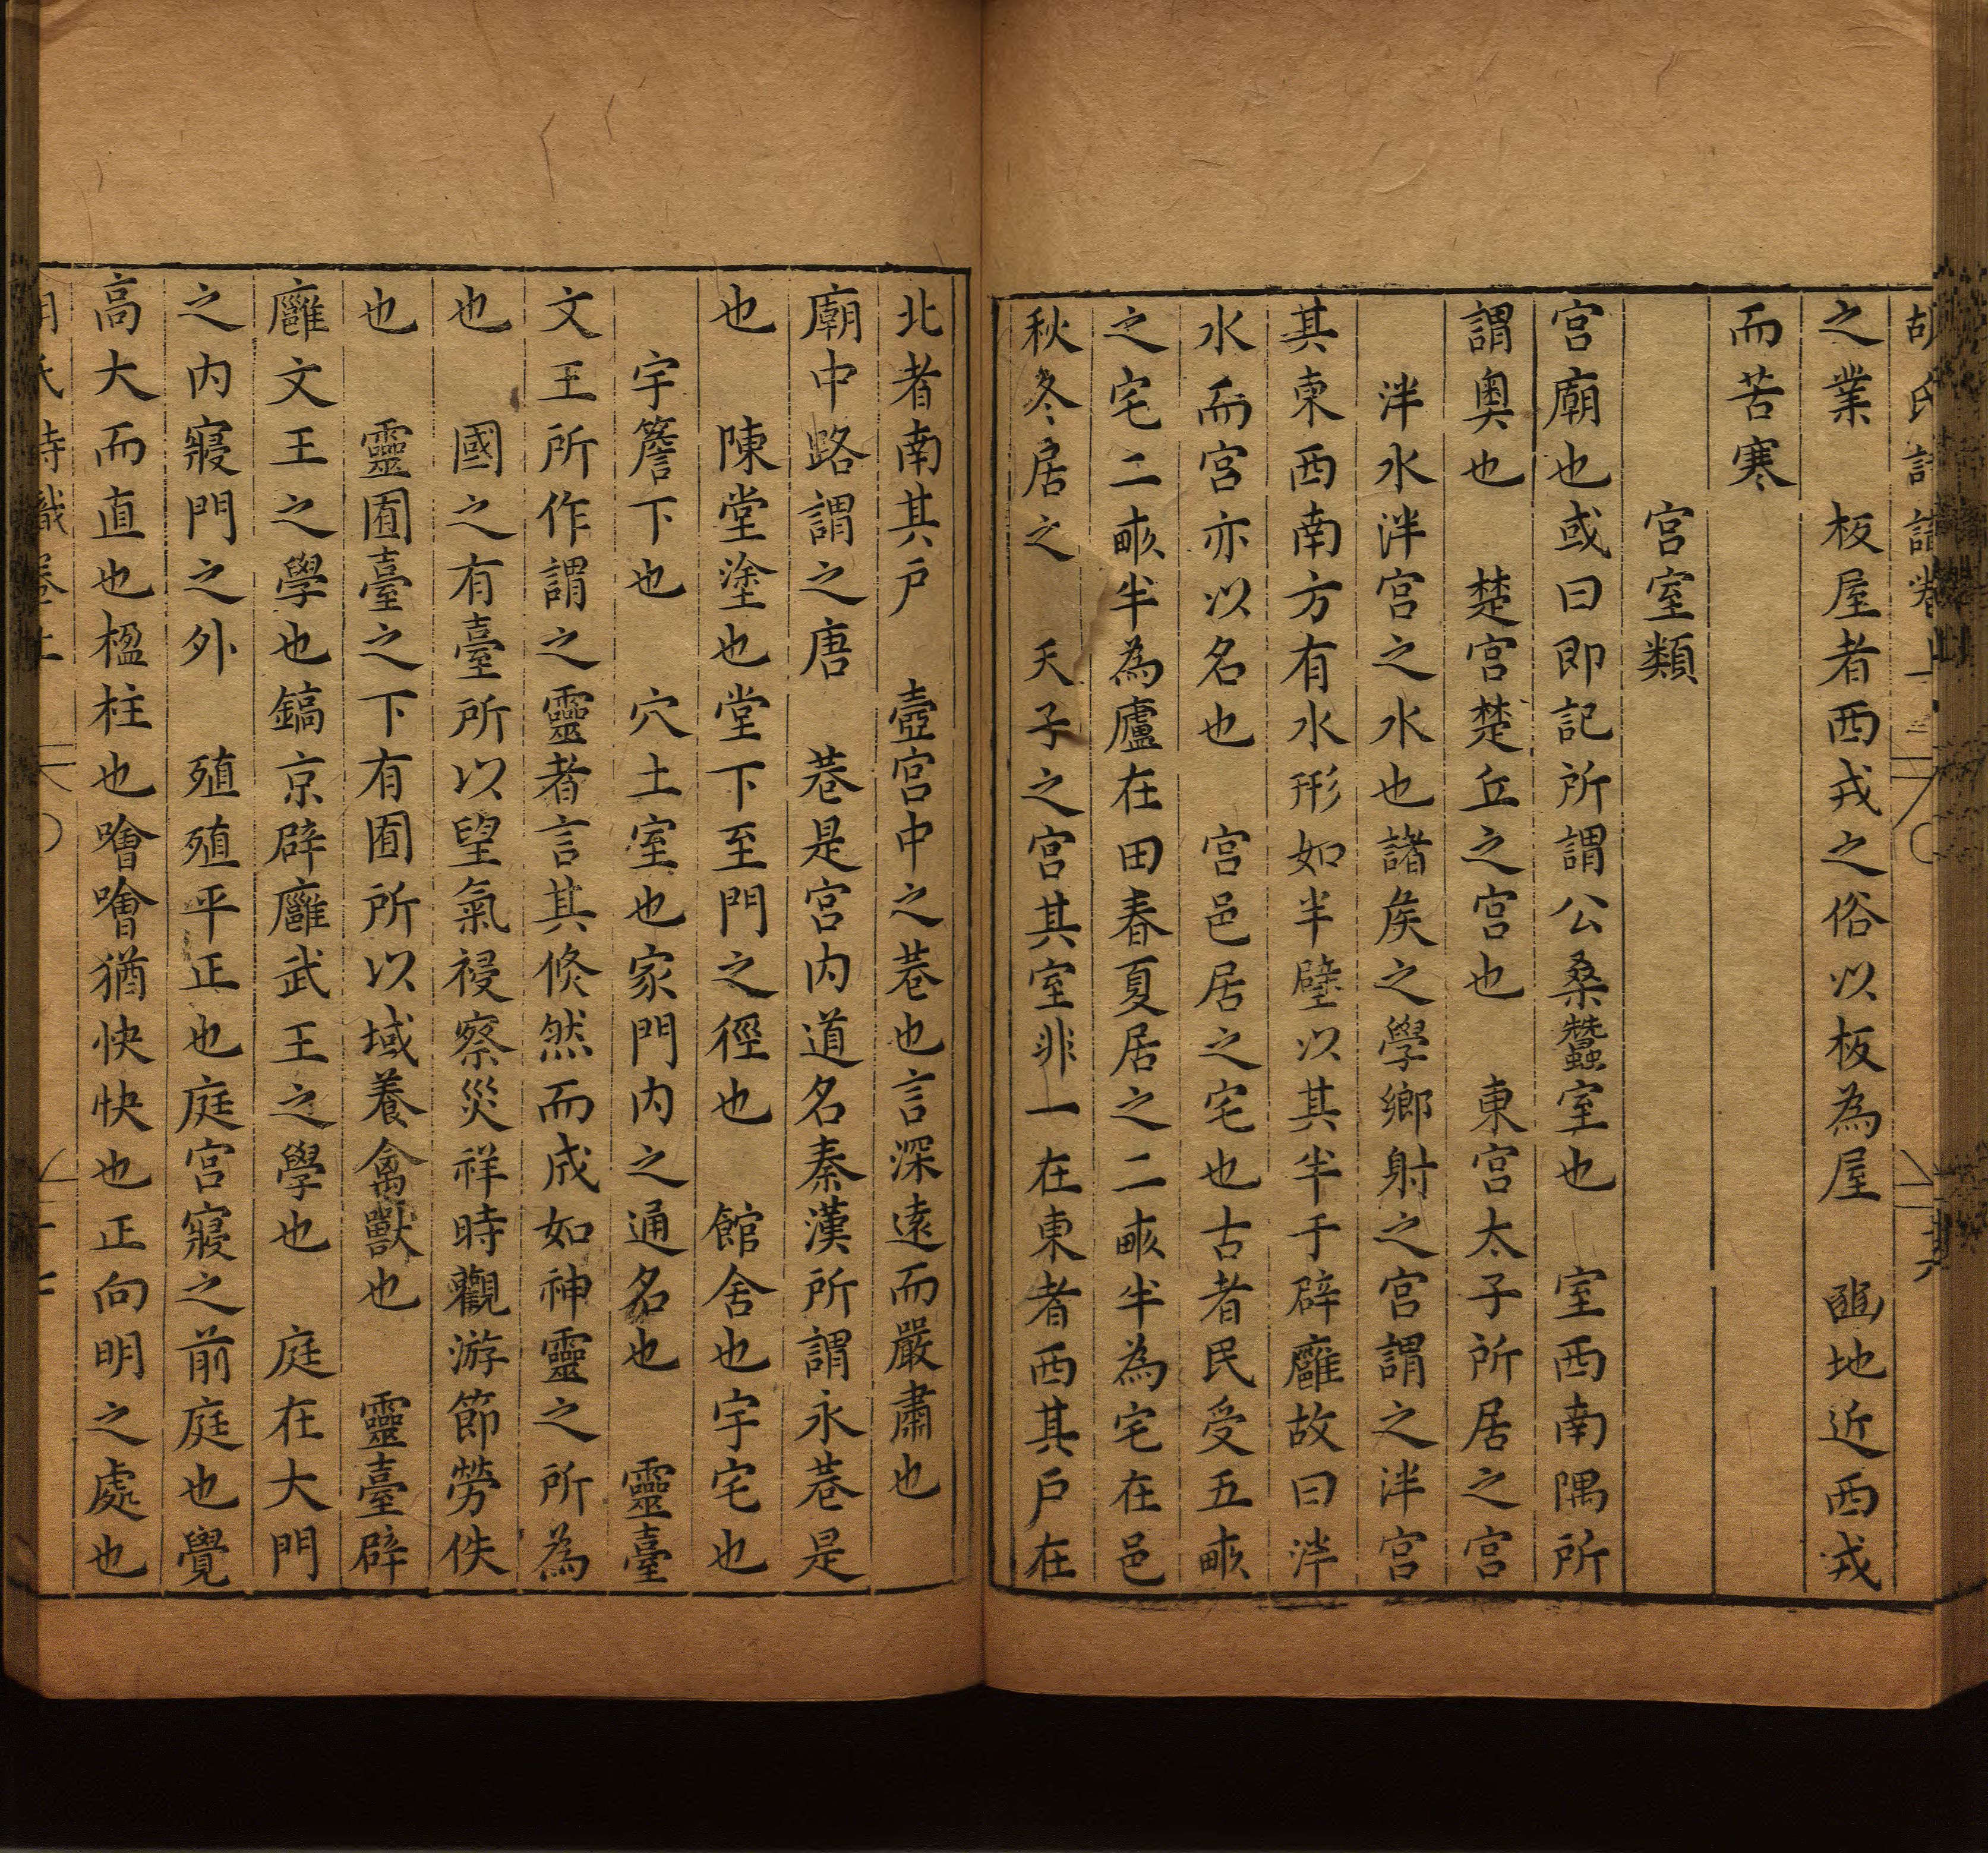 之業　板屋者西戎之俗以板為屋　豳地近西戎
而苦寒
宮室類
宮廟也或曰即記所謂公桑蠶室也　室西南隅所
謂奧也　楚宮楚丘之宮也　東宮太子所居之宮
泮水泮宮之水也諸矦之學鄉射之宮謂之泮宮
其東西南方有水形如半壁以其半于辟廱故曰泮
水而宮亦以名也　宮邑居之宅也古者民受五畝
之宅二畝半為廬在田春夏居之二畝半為宅在邑
秋冬居之　天子之宮其室非一在東者西其戶在
北者南其戶　壼宮中之巷也言深遠而嚴肅也
廟中路謂之唐　巷是宮內道名秦漢所謂永巷是
也　陳堂塗也堂下至門之徑也　館舍也宇宅也
宇簷下也　穴土室也家門內之通名也　靈臺
文王所作謂之靈者言其倐然而成如神靈之所為
也　國之有臺所以望氣祲察災祥時觀游節勞佚
也　靈囿臺之下有囿所以域養禽獸也　靈臺辟
廱文王之學也鎬京辟廱武王之學也　庭在大門
之內寢門之外　殖殖平正也庭宮寢之前庭也覺
高大而直也楹柱也噲噲猶快快也正向明之處也